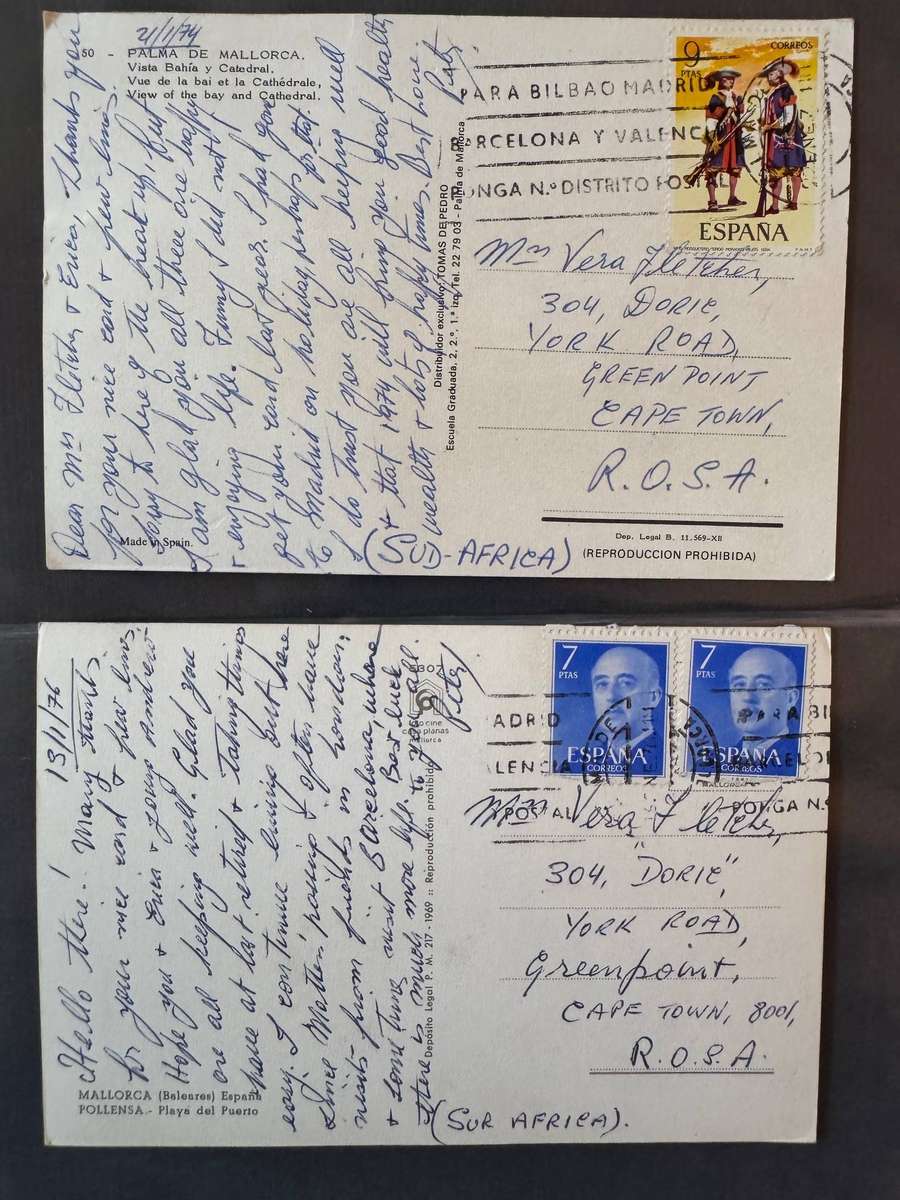 21/1/74
50 - PALMA DE MALLORCA.
Vista Bahía y Catedral.
Vue de la bai et la Cathédrale,
View of the bay and Cathedral.
Dear Mrs Fletcher & Erica, Thanks you
for your nice card & few lines.
Sorry to hear of the break up, but
I am glad you all three are happy
& enjoying life. Funny I did not
get your card last year. I had gone
to Madrid on holiday, perhaps that.
I do trust you are all keeping well
& that 1974 will bring you good health
wealth & lots of happy times. Best love.
Made in Spain.
Distribuidor exclusivo: TOMAS DE PEDRO
Escuela Graduada, 2, 2.º, 1.ª izq. Tel. 22 79 03 - Palma de Mallorca
PARA BILBAO MADRID
BARCELONA Y VALENCI
PONGA N.º DISTRITO POSTAL
9
PTAS
CORREOS
ESPAÑA
Mrs Vera Fletcher,
304, DORIC,
YORK ROAD,
GREEN POINT
CAPE TOWN,
R.O.S.A.
(SUD-AFRICA)
Dep. Legal B. 11.569-XII
(REPRODUCCION PROHIBIDA)
13/1/76
Hello there! Many thanks
for your nice card & few lines.
Hope you & Erica & young Andrew
are all keeping well. Glad you
have at last retired & taking things
easy. I continue living out here
since Mother's passing & often have
visits from friends on holiday
& sometimes visit Barcelona, where
there is much more life. Best luck
to you all.
MALLORCA (Baleares) España
POLLENSA.- Playa del Puerto
5307
foto cine
casa planas
mallorca
Depósito Legal P. M. 217 - 1969 :: Reproducción prohibida
7
PTAS
ESPAÑA
CORREOS
7
PTAS
ESPAÑA
CORREOS
MADRID
VALENCIA
POSTAL
PARA BI
BARCELO
PONGA N.º
Mrs Vera Fletcher,
304, "DORIC",
YORK ROAD,
Greenpoint,
CAPE TOWN, 8001,
R.O.S.A.
(SUR AFRICA).